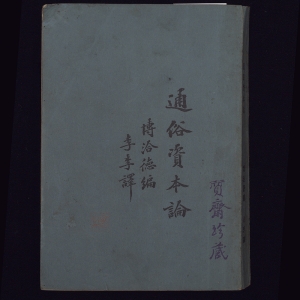 通俗資本論
博洽德編
李季譯
齋珍藏